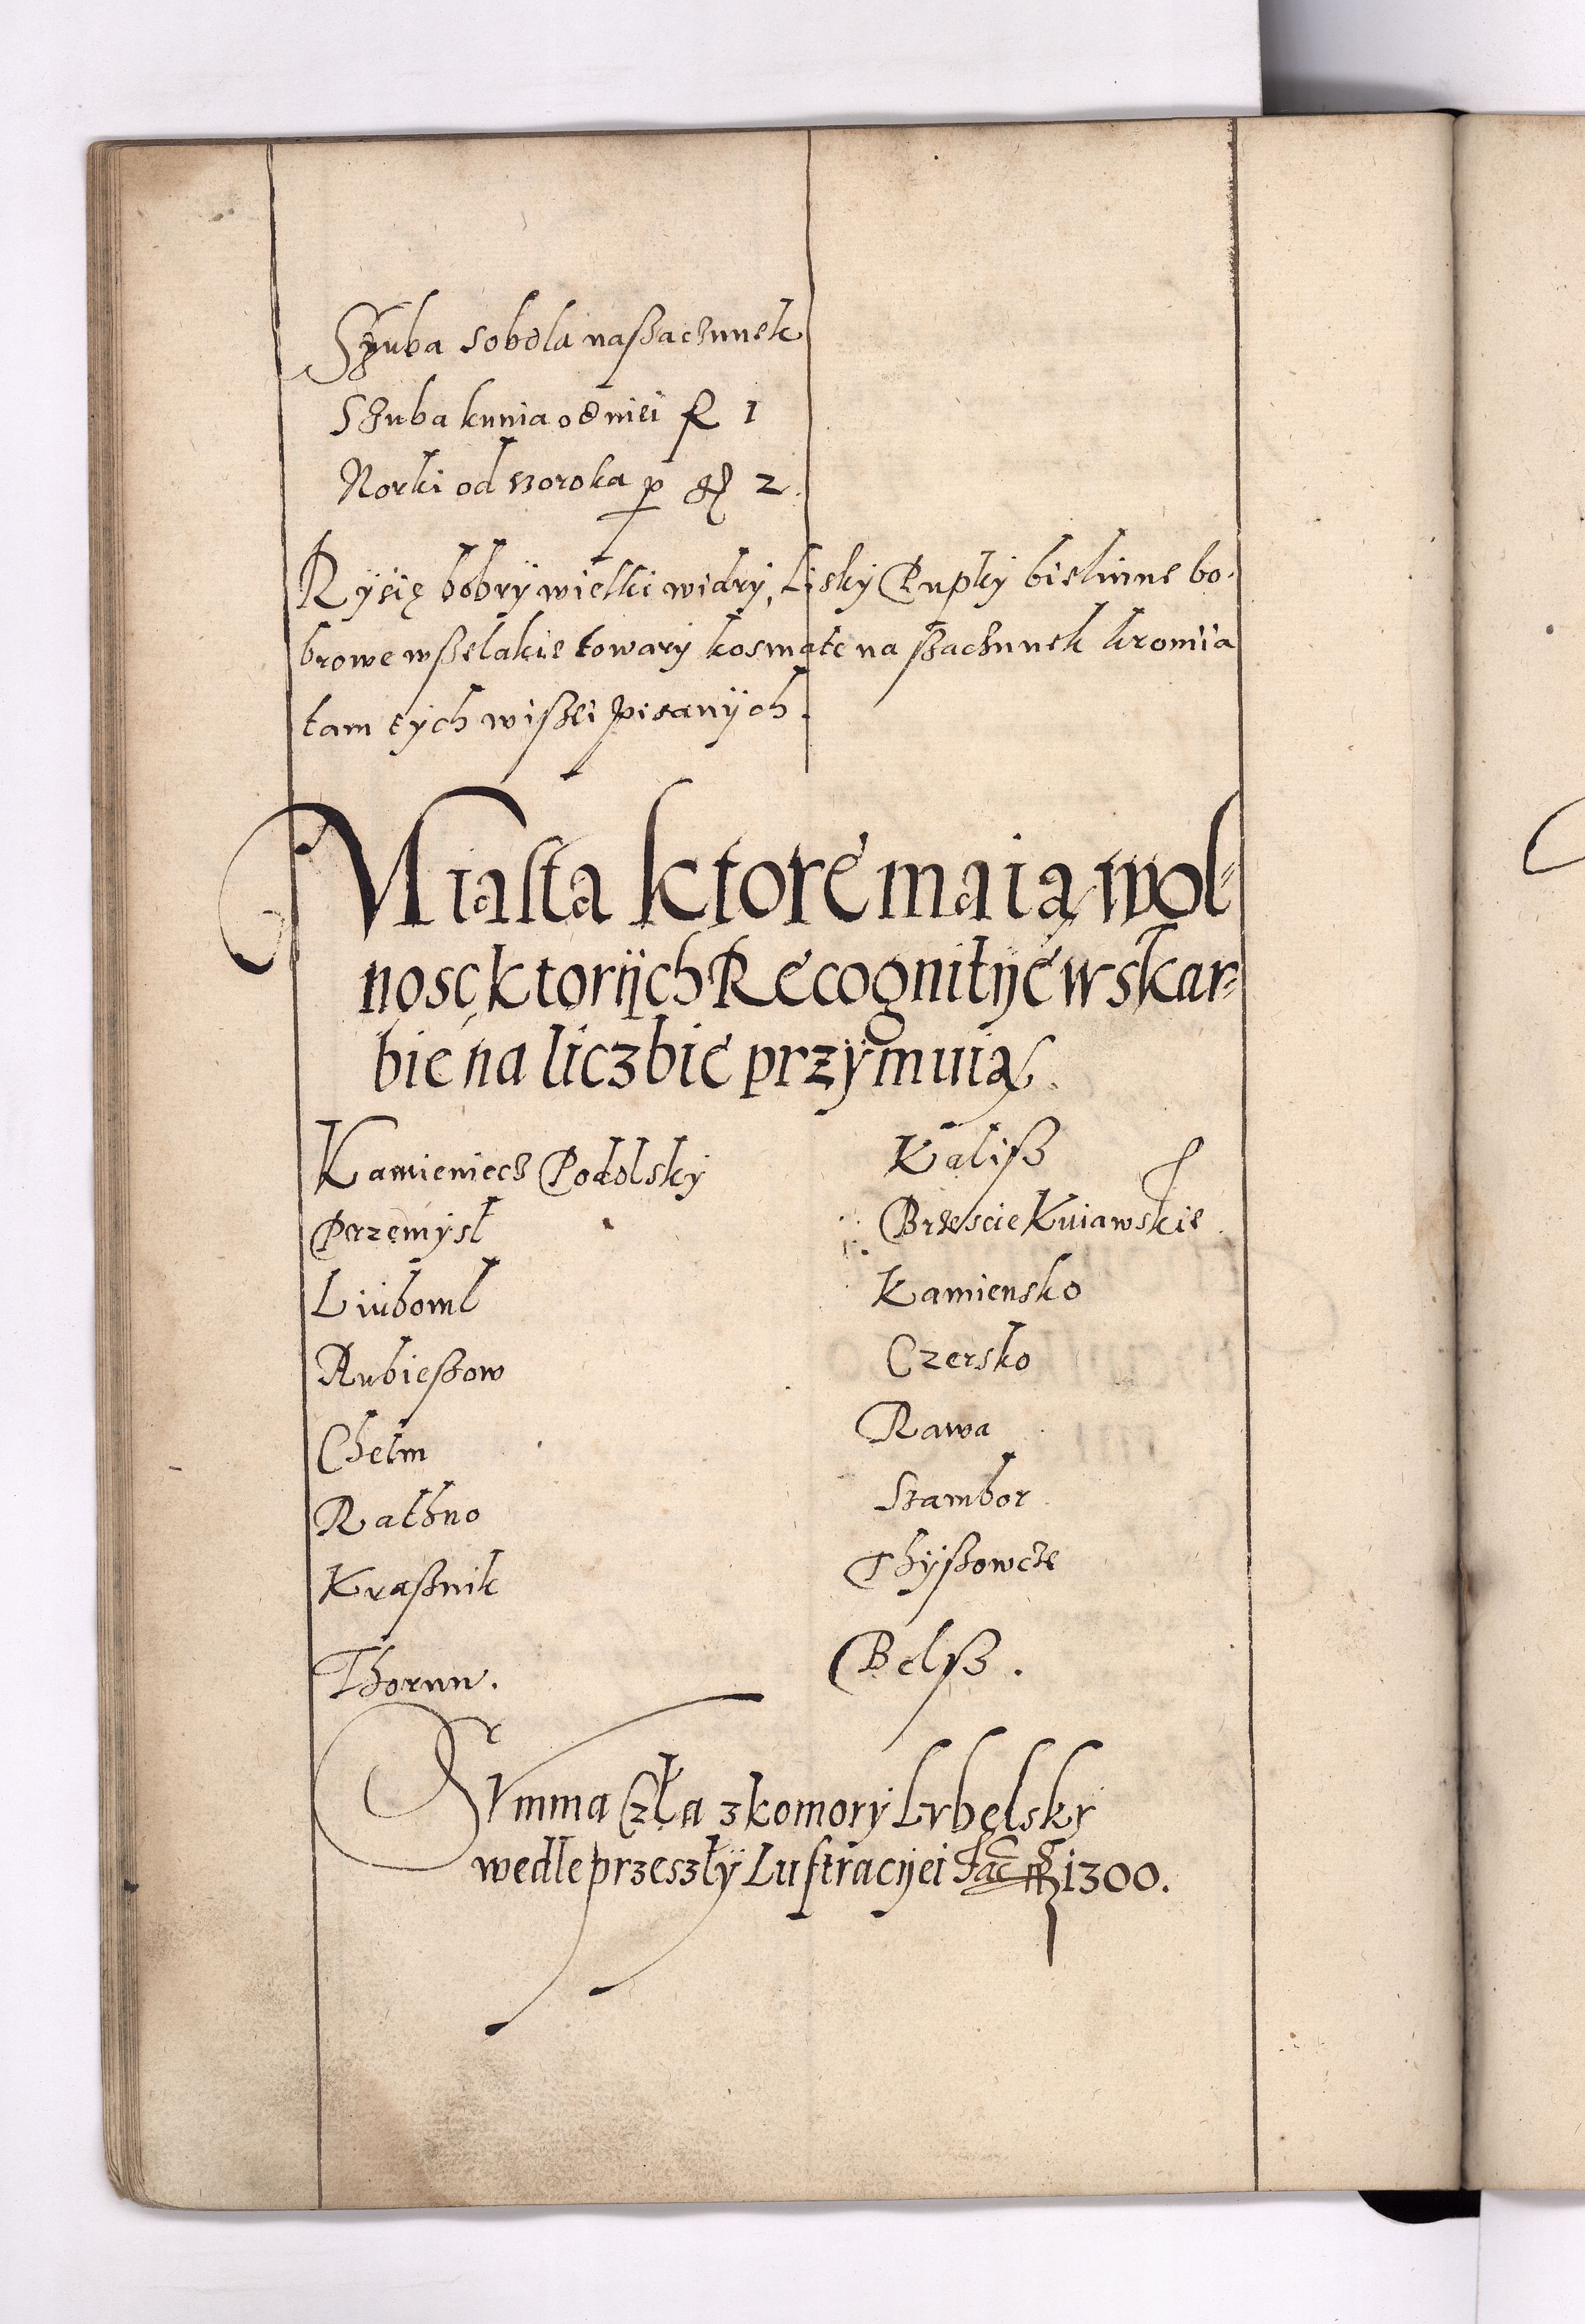 Szuba sobola na szaczunek
Szuba kunia od niei fl 1
Norki od szoroka p gr 2.
Rysię bobry wielki widry, Lisky Pupky bielinne bo-
browe wszelakie towary kosmate na szaczunek kromia
tam tych wiszei pisanÿch.
Miasta ktore maią wol-
nosc ktorÿch Recognitÿe w skar-
bie na liczbie przÿmuią.
Kamieniecz Podolsky
Przemysl
Liuboml
Rubieszow
Chełm
Rathno
Krasznik
Thorun.
Kalisz
Brzescie Kuiawskie
Kamiensko
Czersko
Rawa
Szambor
Thÿszowcze
Belsz.
Summa Czła z komory Lubelsky
wedle przeszłÿ Lustracÿei Fac fl 1300.